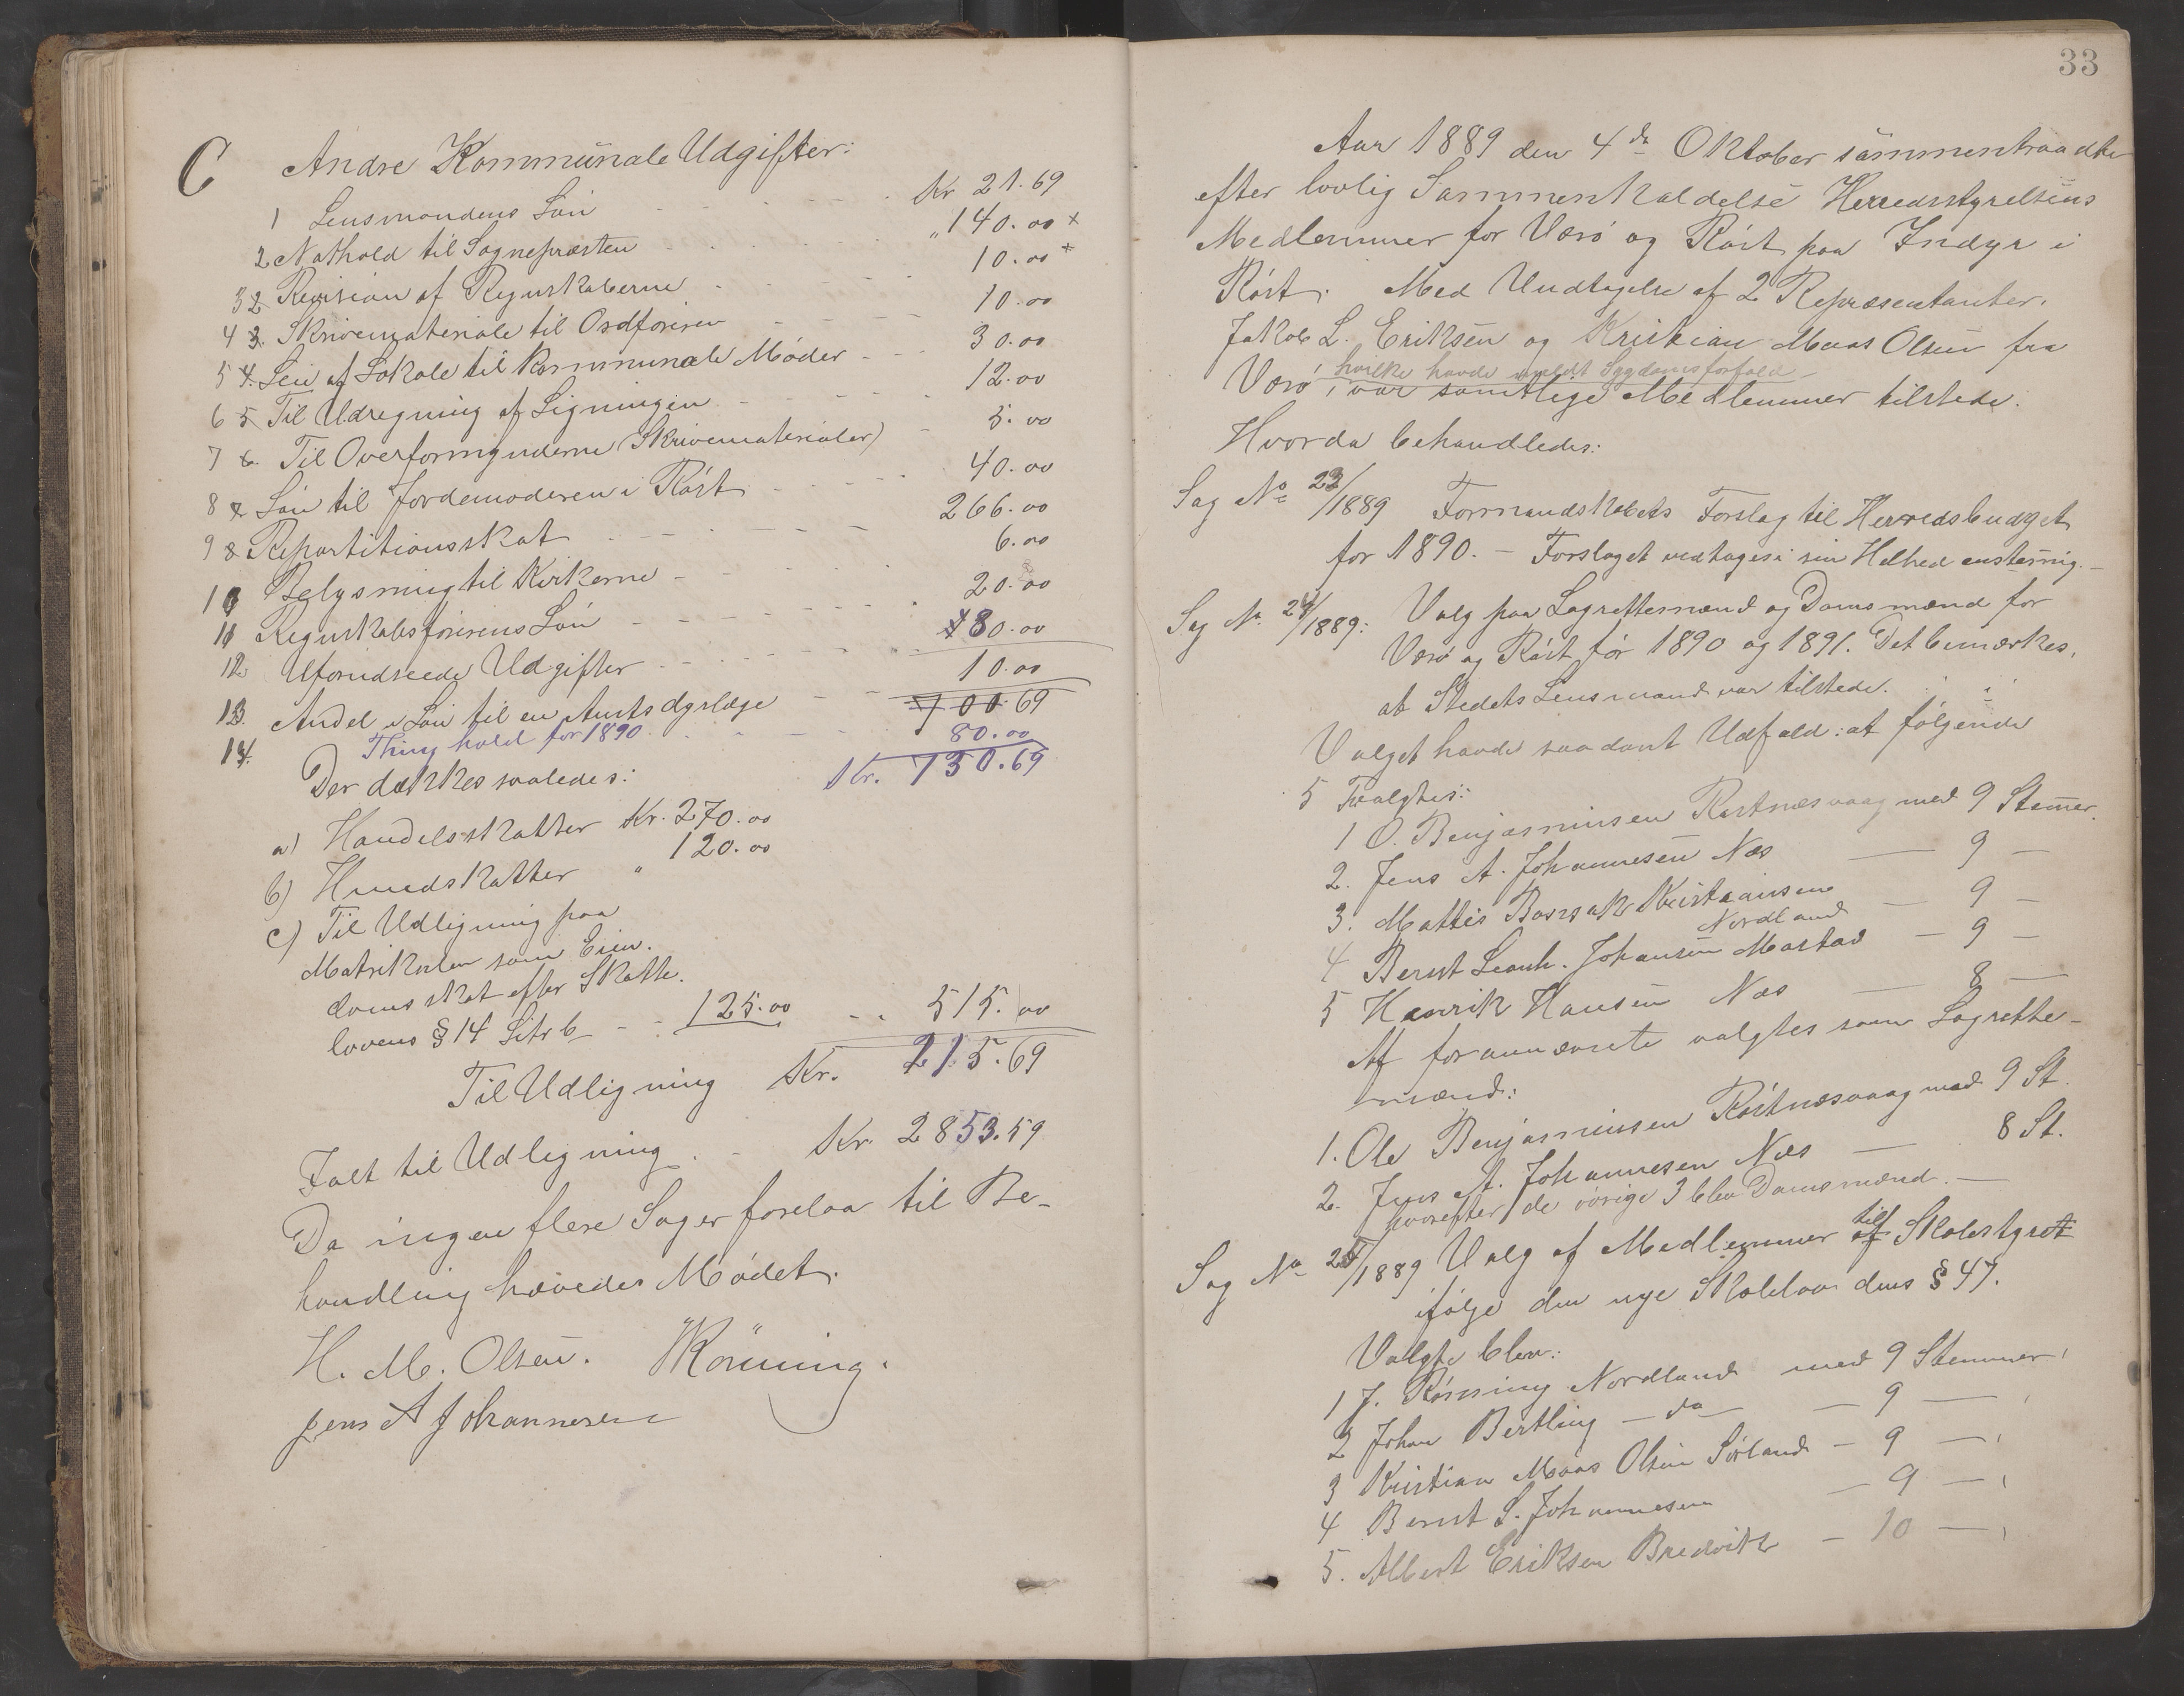 C Andre Kommunale Udgifter:
1 Lensmandens Løn - - - Kr 21.69
2 Nathold til Sognepræsten - - - „ 140.00 +
3 2 Revision af Regnskaberne - - - 10.00 +
4 3. Skrivemateriale til Ordføreren - - - 10.00
5 4. Leie af Lokale til kommunale Møder - - - 30.00
6 5 Til Udregning af Ligningen - - - 12.00
7 6. Til Overformynderne (Skrivematerialer) - 5.00
8 7 Løn til Jordemoderen i Røst - - - 40.00
9 8 Repartitionsskat - - - 266.00
10 Belysning til Kirkerne - - - 6.00
11 Regnskabsførerens Løn - - - 20.00
12 Uforudseede Udgifter - - - 80.00
13. Andel i Løn til en Amtsdyrlæge - - 10.00
700.69
14. Thinghold for 1890 - - - 80.00
Der dækkes saaledes: Kr. 730.69
a) Handelsskatter Kr. 270.00
b) Hundskatter " 120.00
c) Til Udligning paa
Matrikulen som Eien-
doms skat efter Skatte-
lovens § 14 Litr b - - 125.00 - - 515.00
Til Udligning Kr. 215.69
Ialt til Udligning. - Kr. 2853.59
Da ingen flere Sager forelaa til Be-
handling hævedes Mødet.
H. M. Olsen. Rönning.
Jens A Johannesen
33
Aar 1889 den 4de Oktober sammentraadte
efter lovlig Sammenkaldelse Herredsstyrelsens
Medlemmer for Værø og Røst paa Indyr i
Røst. Med Undtagelse af 2 Repræsentanter.
Jakob L. Eriksen og Kristian Maas Olsen fra
hvilke havde meldt Sygdomsforfald -
Værø, var samtlige Medlemmer tilstede.
Hvorda behandledes:
Sag No 23/1889 Formandskabets Forslag til Herredsbudget
for 1890. - Forslaget vedtages i sin Helhed enstemig. -
Sag No 24/1889: Valg paa Lagrettemænd og Domsmænd for
Værø og Røst for 1890 og 1891. Det bemærkes,
at Stedets Lensmand var tilstede.
Valget havde saadant Udfald: at følgende
5 valgtes:
1 O. Benjaminsen Røstnæsvaag med 9 Stemer.
2. Jens A. Johannesen Næs — 9 —
3. Mattis Kristiansen Nordland — 9 —
4 Bernt Leonh. Johansen Mostad — 9 —
5 Henrik Hansen Næs — 8 —
Af forannævnte valgtes som Lagrette-
mænd:
1. Ole Benjaminsen Røstnæsvaag med 9 St.
2. Jens A. Johannesen Næs — 8 St.
hvorefter de øvrige 3 blev Domsmænd. —
Sag No 25/1889 Valg af Medlemmer af til Skolestyret
ifølge den nye Skolelov dens § 47.
Valgte blev:
1 J. Rønning Nordland med 9 Stemmer,
2 Johan Bertling — do — — 9 —
3 Kristian Maas Olsen Sørland — 9 —
4 Bernt L. Johannesen — 9 —
5. Albert Eriksen Bredvik — 10 —